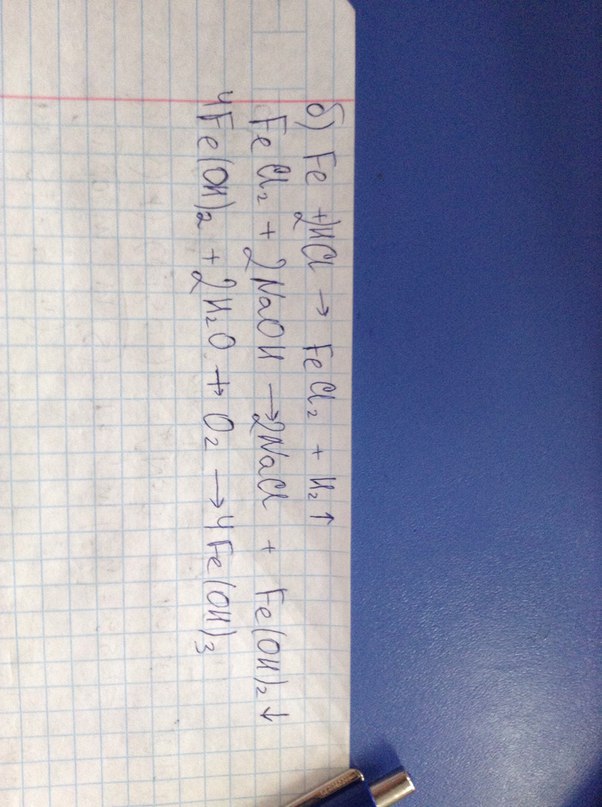 б) Fe + 2HCl → FeCl₂ + H₂↑
FeCl₂ + 2NaOH → 2NaCl + Fe(OH)₂↓
4Fe(OH)₂ + 2H₂O + O₂ → 4Fe(OH)₃